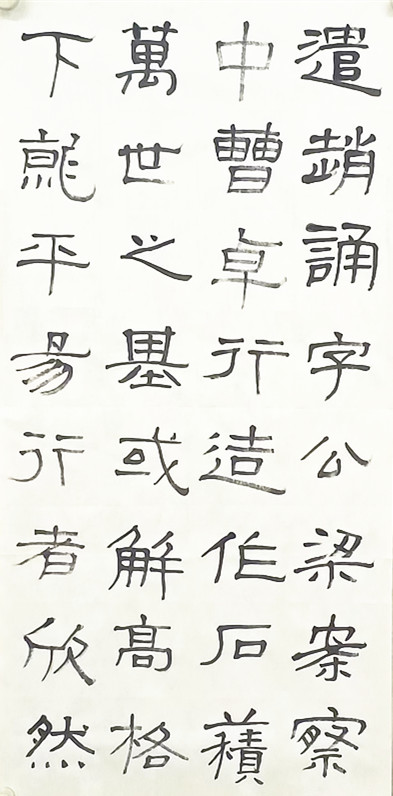 遣趙誦字公梁案察
中曹卓行造作石𧂐
萬世之基或解高格
下就平易行者欣然